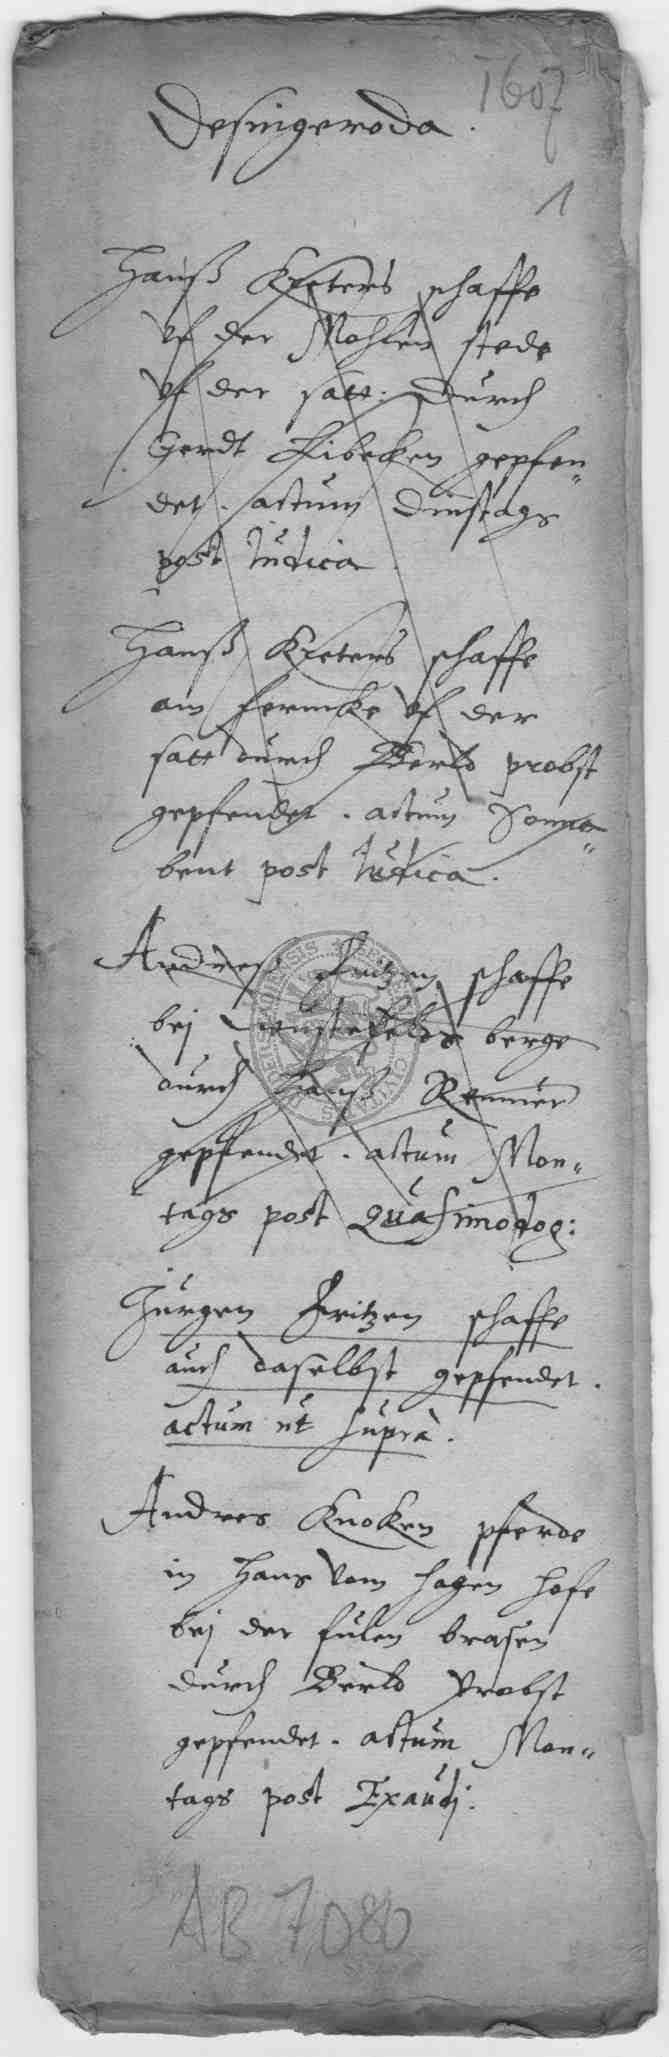 1607
Desingeroda.
1
Hanß Kreters schaffe
vf der Mohlen stede
vf der satt: durch
Gerdt Libecken gepfen„
det. actum Dinstags
post Iudica.
Hanß Kreters schaffe
am vf der
satt durch probst
gepfendet. actum Sonna„
bent post Iudica.
Andreß Fritzen schaffe
bej berge
durch Hanß
gepfendet. actum Mon„
tags post Quasimodog:
Jürgen Fritzen schaffe
auch daselbst gepfendet.
actum ut supra.
Andres Knoken pferde
in Hans vom hagen hofe
bej der fulen brasen
durch Probst
gepfendet. actum Mon„
tags post Exaudj.
AB 7080